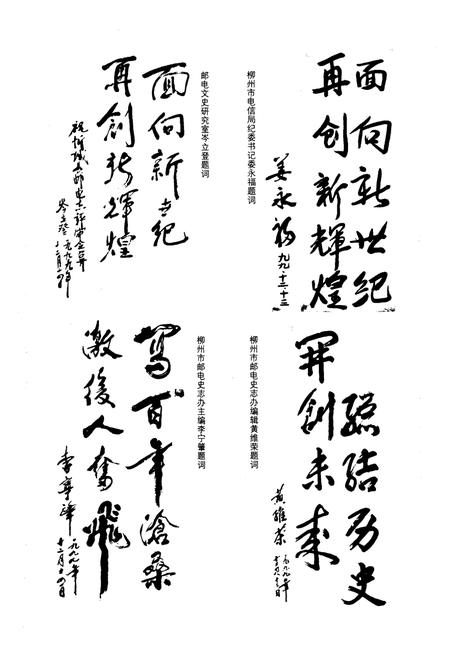 面向新世纪
再创新輝煌
姜永福
九九·十二·十三
柳州市电信局纪委书记姜永福题词
面向新世纪
再创新輝煌
岑立登
一九九九年
邮电文史研究室岑立登题词
總结历史
开创未来
黄維荣
一九九九年
柳州市邮电史志办编辑黄维荣题词
写百年滄桑
激後人奮飛
李寧肇
一九九九年
十二月十四日
柳州市邮电史志办主编李宁肇题词